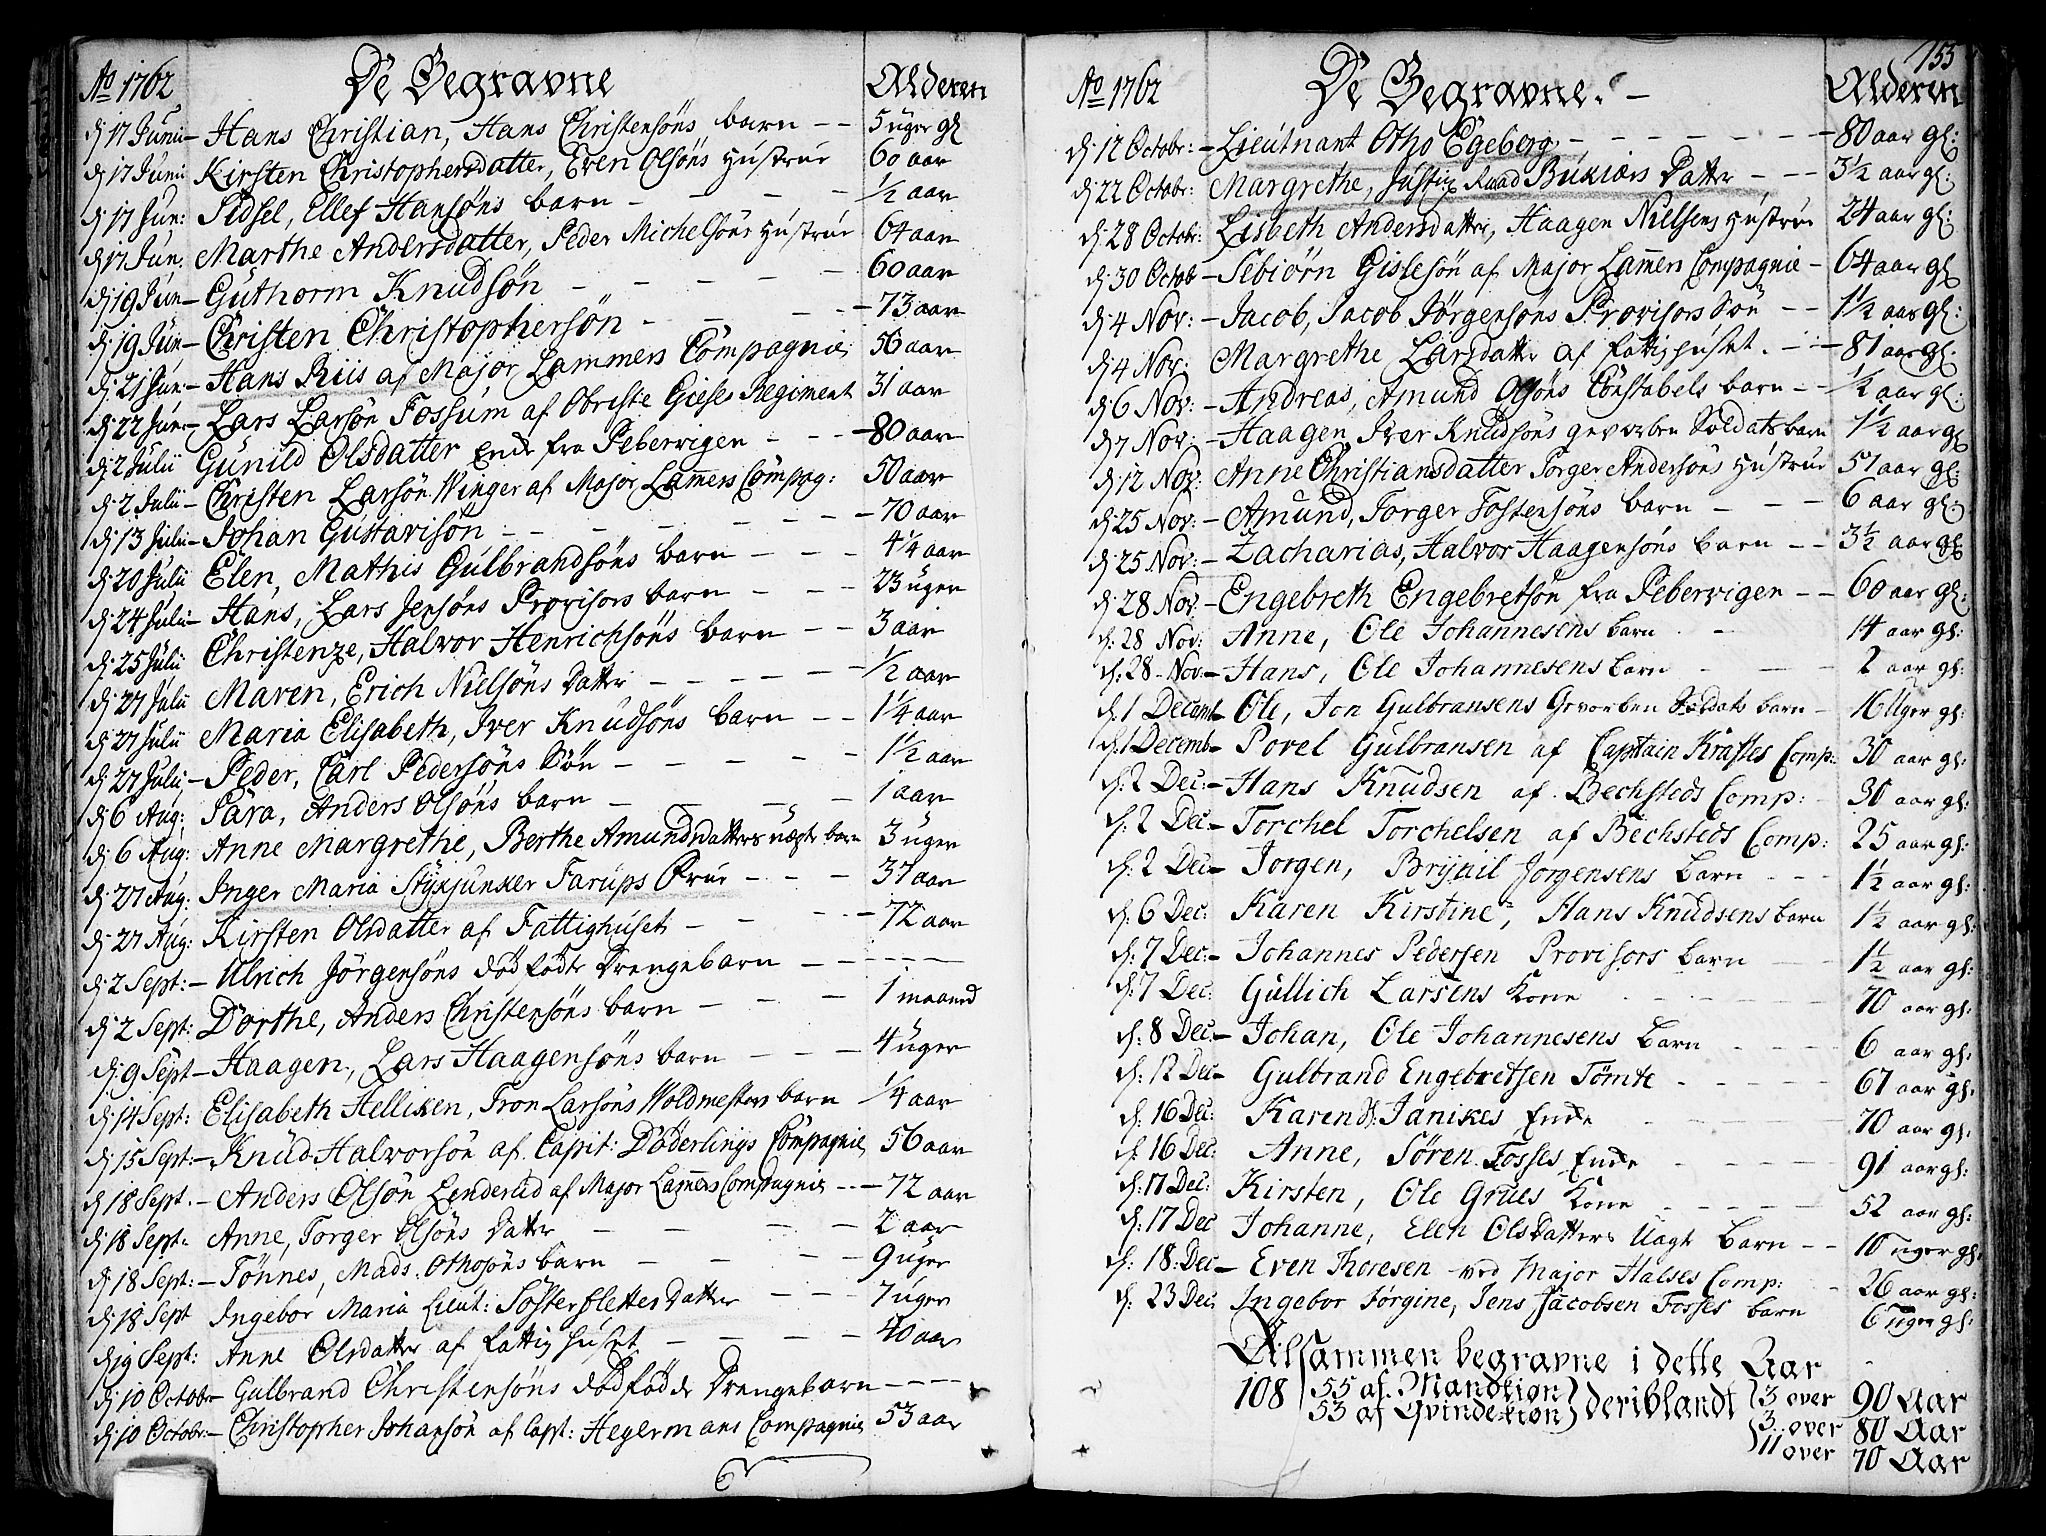 Ao 1762 De Begravne Alderen
d 17 Junii - Hans Christian, Hans Christensøns barn - - 5 uger gl
d 17 Junii Kirsten Christophersdatter, Even Olsøns Hustrue 60 aar
d 17 Jun: Sidsel, Ellef Hansøns barn - - - ½ aar
d 17 Jun: Marthe Andersdatter, Peder Michelsøns Hustrue 64 aar
d 19 Jun - Guthorm Knudsøn - - - - 60 aar
d: 19 Jun - Christen Christophersøn - - - 73 aar
d: 21 Jun - Hans Riis af Major Lammers Compagnie 56 aar
d: 22 Jun - Lars Larsøn Fossum af Obriste Gieses Regiment 31 aar
d: 2 Julii Gunild Olsdatter Enke fra Pebervigen - - - 80 aar
d: 2 Julii - Christen Larsøn Winger af Major Lam̄ers Compag: 50 aar
d: 13 Julii - Johan Gustavisøn - - - - - 70 aar
d: 20 Julii Elen, Mathis Gulbrandsøns barn - - - 4¼ aar
d: 24 Julii - Hans, Lars Jensøns Provisors barn - - - 23 uger
d: 25 Julii Christenze, Halvor Henrichsøns barn - - 3 aar
d: 27 Julii Maren, Erich Nielsøns Datter - - - - ½ aar
d: 27 Julii Maria Elisabeth, Iver Knudsøns barn - - 1¼ aar
d: 27 Julii - Peder, Carl Pedersøns Søn - - - - 1½ aar
d: 6 Aug: Sara, Anders Olsøns barn - - - 1 aar
d: 6 Aug: Anne Margrethe, Berthe Amundsdatters uægte barn 3 uger
d: 27 Aug: Inger Maria Stykjunker Farups Frue - - - 37 aar
d: 27 Aug: Kirsten Olsdatter af Fattighuset - - - 72 aar
d: 2 Sept: - Ulrich Jørgensøns dødfødte Drengebarn - - - - -
d: 2 Sept: Dorthe, Anders Christensøns barn - - - 1 maaned
d: 9 Sept - Haagen, Lars Haagensøns barn - - - 4 uger
d: 14 Sept: Elisabeth Helliken, Tron Larsøns Woldmesters barn ¼ aar
d: 15 Sept: - Knud Halvorsøn af Capit: Døderlings Compagnie 56 aar
d 18 Sept. - Anders Olsøn Lenderud af Major Lam̄ers Compagnie - - 72 aar
d: 18 Sept. Anne, Torger Olsøns Datter - - - - 2 aar
d: 18 Sept: - Tønnes, Mads Othosøns barn - - - - 9 uger
d: 18 Sept Ingebor Maria Lieut: Datter - - - 7 uger
d 19 Sept: Anne Olsdatter af fattighuset - - - - 40 aar
d: 10 Octobr - Gulbrand Christensøns dødfødde Drengebarn - - - -
d: 10 Octobr: - Christopher Johansøn af Capt: Hegermans Compagnie 53 aar
153
Ao 1762 De Begravne. - Alderen
d: 12 Octobr: - Lieutnant Otho Egeberg - - - - - - 80 aar gl:
d: 22 Octobr: Margrethe, Justiz Raad Bukiærs Datter - - - 3½ aar gl:
d: 28 Octobr: Lisbeth Andersdatter, Haagen Nielsens Hustrue 24 aar gl:
d: 30 Octobr - Sebiørn Gislesøn af Major Lamen Compagnie - 64 aar gl
d: 4 Nov: - Jacob, Jacob Jørgensøns Provisors Søn - - 1½ aar gl:
d: 4 Nov: Margrethe Larsdatter af fattighuset. - - 81 aar gl:
d: 6 Nov: - Andreas, Amund Olsøns Constabels barn - - ½ aar gl:
d: 7 Nov: - Haagen Iver Knudsøns gevorben Soldats barn 1½ aar gl
d: 12 Nov: Anne Christiansdatter Torger Andersøns Hustrue 57 aar gl:
d: 25 Nov: - Amund, Torger Tostensøns barn - - - 6 aar gl:
d: 25 Nov: - Zacharias, Halvor Haagensøns barn - - 3½ aar gl
d: 28 Nov - Engebreth Engebretsøn fra Pebervigen - - 60 aar gl:
d: 28 Nov: Anne, Ole Johannesens barn - - 14 aar gl:
d: 28 - Nov: - Hans, Ole Johannesens barn - - - 2 aar gl:
d: 1 Decemb - Ole, Jon Gulbransens Gevorben Soldats barn - 16 Uger gl:
d: 1 Decemb - Povel Gulbransen af Captain Krafts Comp: 30 aar gl:
d: 2 Dec: - Hans Knudsen af Bechsteds Comp: - 30 aar gl:
d: 2 Dec - Torchel Torchelsen af Bechsteds Comp: 25 aar gl:
d: 2 Dec - Jorgen, Brynil Jorgensens barn - - - 1½ aar gl:
d: 6 Dec: Karen Kirstine, Hans Knudsens barn 1½ aar gl:
d: 7 Dec: - Johannes Pedersen Provisors barn - - 1½ aar gl:
d: 7 Dec: Gullich Larsens Kone - - - - 70 aar gl:
d: 8 Dec: - Johan, Ole Johannesens barn - - - - 6 aar gl:
d: 12 Dec - Gulbrand Engebretsen Tomte - - - - 67 aar gl:
d: 16 Dec: Karen Janikes Enke - - - - 70 aar gl:
d: 16 Dec: Anne, Søren Fosses Enke - - - - 91 aar gl:
d: 17 Dec: Kirsten, Ole Grues Kone - - - - - 52 aar gl:
d: 17 Dec Johanne, Elen OlsDatters Uægt barn - - 10 uger gl:
d: 18: Dec - Even Thoresen ved Major Halses Comp: - 26 aar gl:
d: 23 Dec. Ingebor Jørgine, Jens Jacobsen Fosses barn 6 uger gl:
Alsammen begravne i dette Aar
108 } 55 af Mandkiøn } deriblandt } 3 over 90 Aar
53 af Qvindekiøn 3 over 80 Aar
11 over 70 Aar